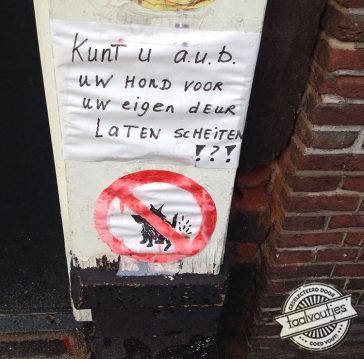 Kunt u a.u.b.
uw HOND VOOR
uw eigen deur
LATEN SCHEITEN
!?!
GESELECTEERD DOOR
taalvoutjes
GOED VOUT